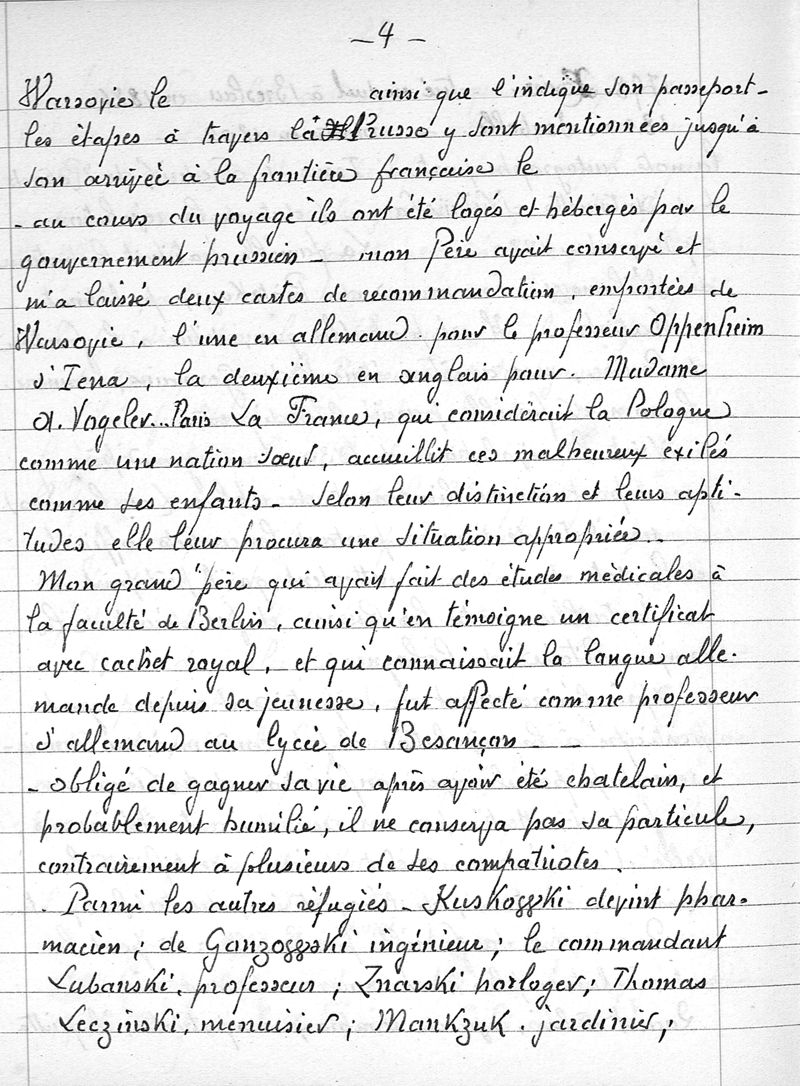 — 4 —
Warsovie le ainsi que l'indique son passeport -
les étapes à travers la Prusse y sont mentionnées jusqu'à
son arrivée à la frontière française le
- au cours du voyage ils ont été logés et hébergés par le
gouvernement prussien - mon Père avait conservé et
m'a laissé deux cartes de recommandation, emportées de
Warsovie, l'une en allemand pour le professeur Oppenheim
d'Iena, la deuxième en anglais pour. Madame
A. Vogeler... Paris La France, qui considérait la Pologne
comme une nation sœur, accueillit ces malheureux exilés
comme ses enfants - selon leur distinction et leurs apti-
tudes elle leur procura une situation appropriée..
Mon grand père qui avait fait des études médicales à
la faculté de Berlin, ainsi qu'en témoigne un certificat
avec cachet royal, et qui connaissait la langue alle-
mande depuis sa jeunesse, fut affecté comme professeur
d'allemand au lycée de Besançon - -
- obligé de gagner sa vie après avoir été chatelain, et
probablement humilié, il ne conserva pas sa particule,
contrairement à plusieurs de ses compatriotes.
. Parmi les autres réfugiés - Kuskosski devint phar-
macien ; de Gonzosgski ingénieur ; le commandant
Lubanski, professeur ; Znarski horloger ; Thomas
Leczinski, menuisier ; Mankzuk . jardinier ;